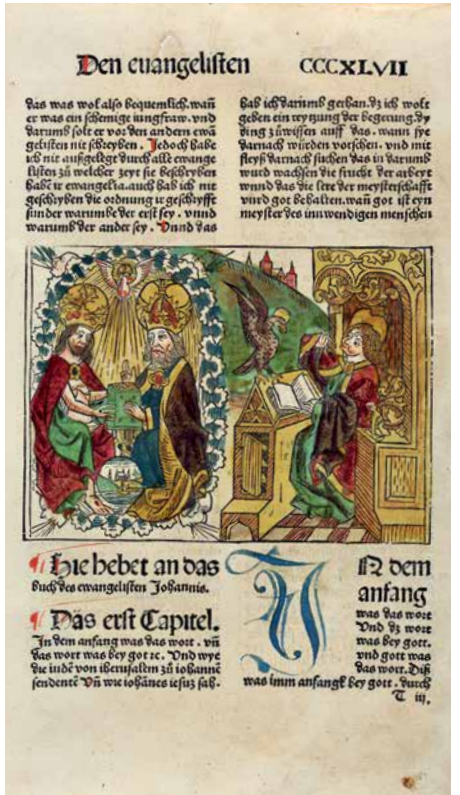 Den euangelisten CCCXLVII
das was wol also bequemlich. wañ
er was ein schemige iungfraw. vnd
darumb solt er vor den andern ewã
gelisten nit schreyben. Jedoch habe
ich nit außgelegt durch alle ewange
listen zů welcher zeyt sie beschryben
habẽ ir ewangelia. auch hab ich nit
geschryben die ordnung ir geschryfft
sunder warumbe der erst sey. vnnd
warumb der ander sey. Vnnd das
hab ich darumb gethan. dz ich wolt
geben ein reyzung der begerung. dy
ding zů wissen auff das. wann sye
darnach würden vorschen. vnd mit
fleyß darnach suchen das in darumb
wurd wachsen die frucht der arbeyt
vnnd das die lere der meysterschafft
vvird got behalten. wañ got ist eyn
meyster des inwendigen menschen
Hie hebet an das
buch des ewangelisten Johannis.
Das erst Capitel.
In dem anfang was das wort. vñ
das wort was bey got ꝛc. Vnd wye
die iudẽ von iherusalem zů iohannẽ
sendentẽ Vñ wie iohãnes iesuz sah.
IN dem
anfang
was das wort
Vnd dz wort
was bey gott.
vnd gott was
das wort. Diß
was imm anfangk bey gott. durch
T iij.